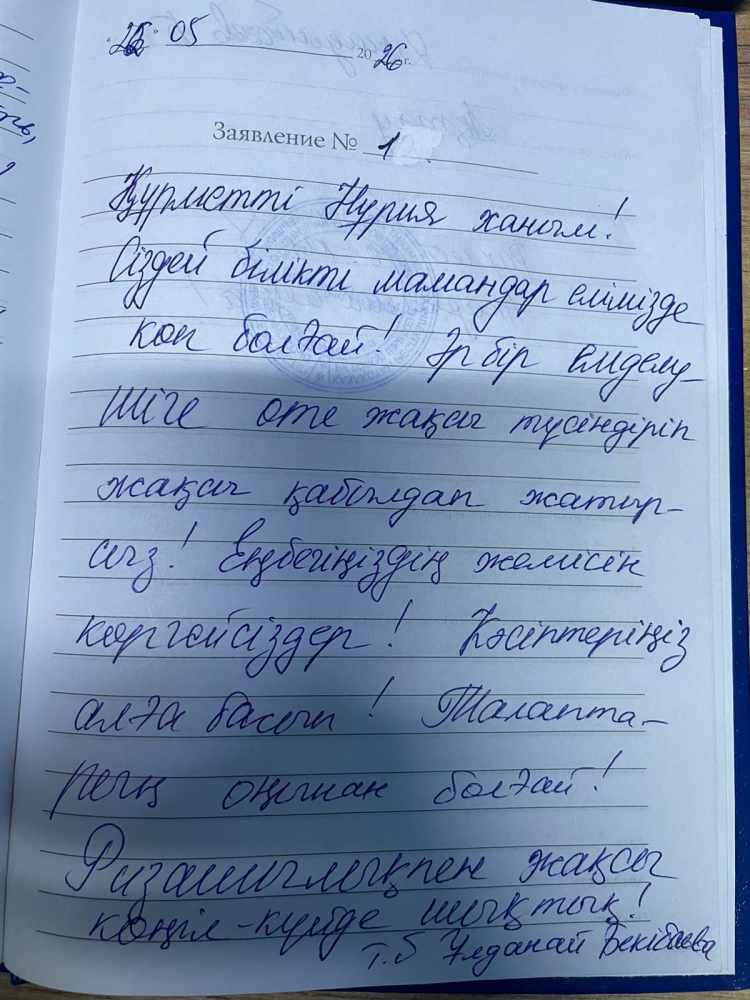 "26" 05 2026 г.
Заявление № 1
Құрметті Нурия ханым!
Сіздей білікті мамандар елімізде
көп болғай! Әр бір емделу-
шіге өте жақсы түсіндіріп
жақсы қабылдап жатыр-
сыз! Еңбегіңіздің жемісін
көргейсіздер! Кәсіптеріңіз
алға басып! Талапта-
рың оңынан болғай!
Ризашылықпен жақсы
көңіл-күйде шықтық!
т.б Ұлданай Бекібаева